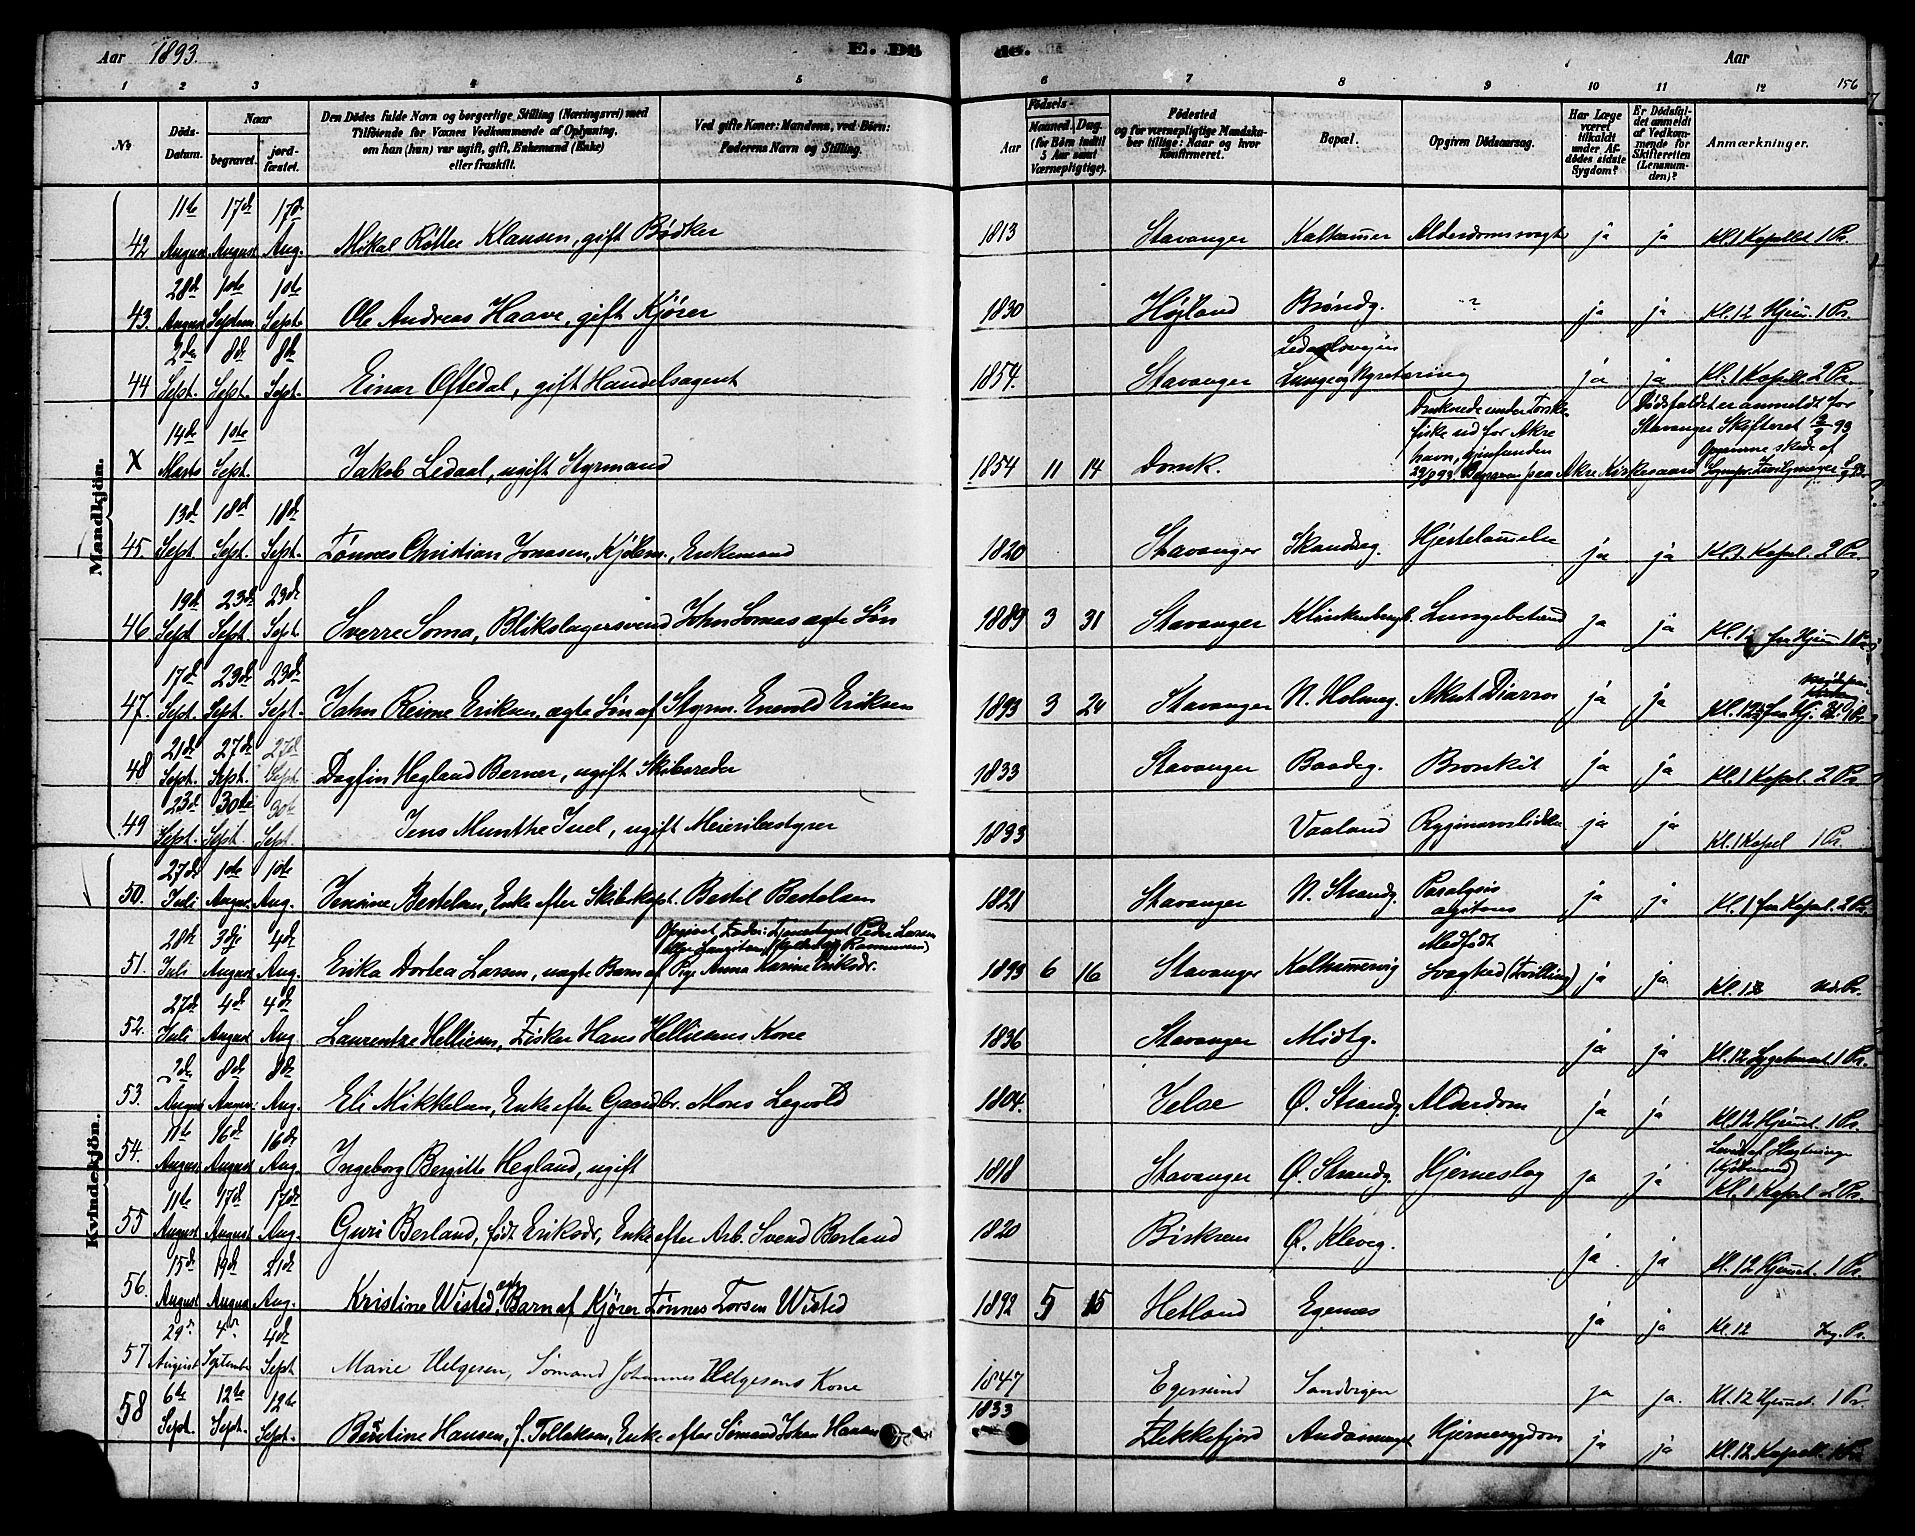 Aar 1893. E. Dö de. Aar 156
1 2 3 4 5 6 7 8 9 10 11 12
No
Døds-Datum.
Naar
begravet.
jordfæstet.
Den Dödes fulde Navn og borgerlige Stilling (Næringsvei) med
Tilföiende for Voxnes Vedkommende af Oplysning,
om han (hun) var ugift, gift, Enkemand (Enke)
eller fraskilt.
Ved gifte Koner: Mandens, ved Börn:
Faderens Navn og Stilling.
Födsels-
Aar
Maaned. Dag.
(for Börn indtil
5 Aar samt
Værnepligtige).
Födested
og for værnepligtige Mandska-
ber tillige: Naar og hvor
konfirmeret.
Bopæl.
Opgiven Dödsaarsag.
Har Læge
været
tilkaldt
under Af-
dödes sidste
Sygdom?
Er Dödsfal-
det anmeldt
af Vedkom-
mende for
Skifteretten
(Lensman-
den)?
Anmærkninger.
Mandkjön.
42 11te August 17de August 17de Aug. Mikal Rötter Klausen, gift Bödker 1813 Stavanger Kalhamer Alderdomssvagh ja ja Kl. 1 Kapellet 1 Pr.
43. 28de August 10de Septem 10de Sept. Ole Andreas Haave, gift Kjörer 1830 Höjland Bröndg. ? ja ja Kl. 12 Hjem. 1 Pr.
44 2den Sept. 8de Sept. 8de Sept. Einar Oftedal, gift Handelsagent 1854. Stavanger Ledaalsvejen Lunge og Nyretæring ja ja Kl. 1 Kapell. 2 Pr.
X 14de Marts 10de Sept. Jakob Ledaal, ugift Styrmand 1854 11 14 Domk. Druknede under Torske-
fiske ud for Akre
havn, gjenfunden
29/8 93. Begraven paa Akre Kirkegaard
Dödsfaldet er anmeldt for
Stavanger Skifteret 2/9 93
45. 13de Sept. 18de Sept. 18de Sept. Tönnes Christian Jonasen, Kjöbm., Enkemand 1820 Stavanger Skandseg. Hjertelammelse ja ja Kl. 1. Kapel. 2 Pr.
46 19de Sept 23de Sept. 23de Sept Sverre Soma, Blikslagersvend John Somas ægte Sön 1889 3 31 Stavanger Klinkenbergb. Lungebetænd ja ja Kl. 12 fra Hjem 1 Pr.
47. 17de Sept. 23de Sept. 23de Sept. Jahn Reime Eriksen, ægte Sön af Styrm. Enevold Eriksen 1893 3 24 Stavanger N. Holmeg. Akut Diarros ja ja Kl. 12½ fra Hj. 1 Pr.
48 21de Sept. 27de Sept. 27de Sept Dagfin Hegland Berner, ugift Skibsreder 1833 Stavanger Baadeg. Bronkit ja ja Kl. 1 Kapel. 2 Pr
49 23de Sept. 30de Sept. 30te Sept. Jens Munthe Juel, ugift Meieribestyrer 1833 Vaaland Rygmarvslidelse ja ja Kl. 1 Kapel 1 Pr.
Kvindekjön.
50. 27de Juli 1ste August 1ste Aug. Jensine Bertelsen, Enke efter Skibskapt. Bertil Bertelsen 1821 Stavanger N. Strandg. Paralysis agitans ja ja Kl. 1 fra Kapel. 2 Pr.
51. 28de Juli 3die August 4de Aug. Erika Dortea Larsen, uægte Barn af Pige Anna Karine Eriksdr.
Opgivet Fader: Tjenestegut Peder Larsen
1893 6 16 Stavanger Kalhammervig Medfödt Svaghed (Tvilling) ja ja. Kl. 12
52. 27de Juli 4de August 4de Aug Laurentze Helliesen, Fisker Hans Helliesens Kone 1836 Stavanger Midtg. ja ja Kl. 12 1 Pr.
53. 2den August 8de August 8de Aug. Eli Mikkelsen, Enke efter Gaardbr. Mons Legvold 1804. Jelse Ö. Strandg Alderdom ja ja Kl. 12 Hjemmet. 1 Pr.
54. 11te August 16de August 16de Aug. Ingeborg Bergitte Hegland, ugift 1818 Stavanger Ö. Strandg. Hjerneslag ja ja Kl. 1 Kapel 2 Pr.
55 11te August 17de August 17de Aug. Guri Berland, född Eriksdr, Enke efter Arb. Svend Berland 1820 Birkrem Ö. Kleveg. ja ja Kl. 12 Hjemmet. 1 Pr.
56. 15de August 19de August 21de Aug. Kristine Wisted, ægte Barn af Kjörer Tönnes Torsen Wisted 1892 5 15 Hetland Egenæs ja ja Kl. 12
57 29de August 4de September 4de Sept Marie Helgesen, Sömand Johannes Helgesens Kone 1847 Egersund Sandvigen ja ja. Kl. 12 Hjemmet 1 Pr
58 6te Sept. 12te Sept. 12te Sept. Bertine Hansen, f. Tollaksen, Enke efter Sömand Johan Hansen 1833 Flekkefjord Hjernesygdom ja ja Kl. 12 Kapell. 1 Pr